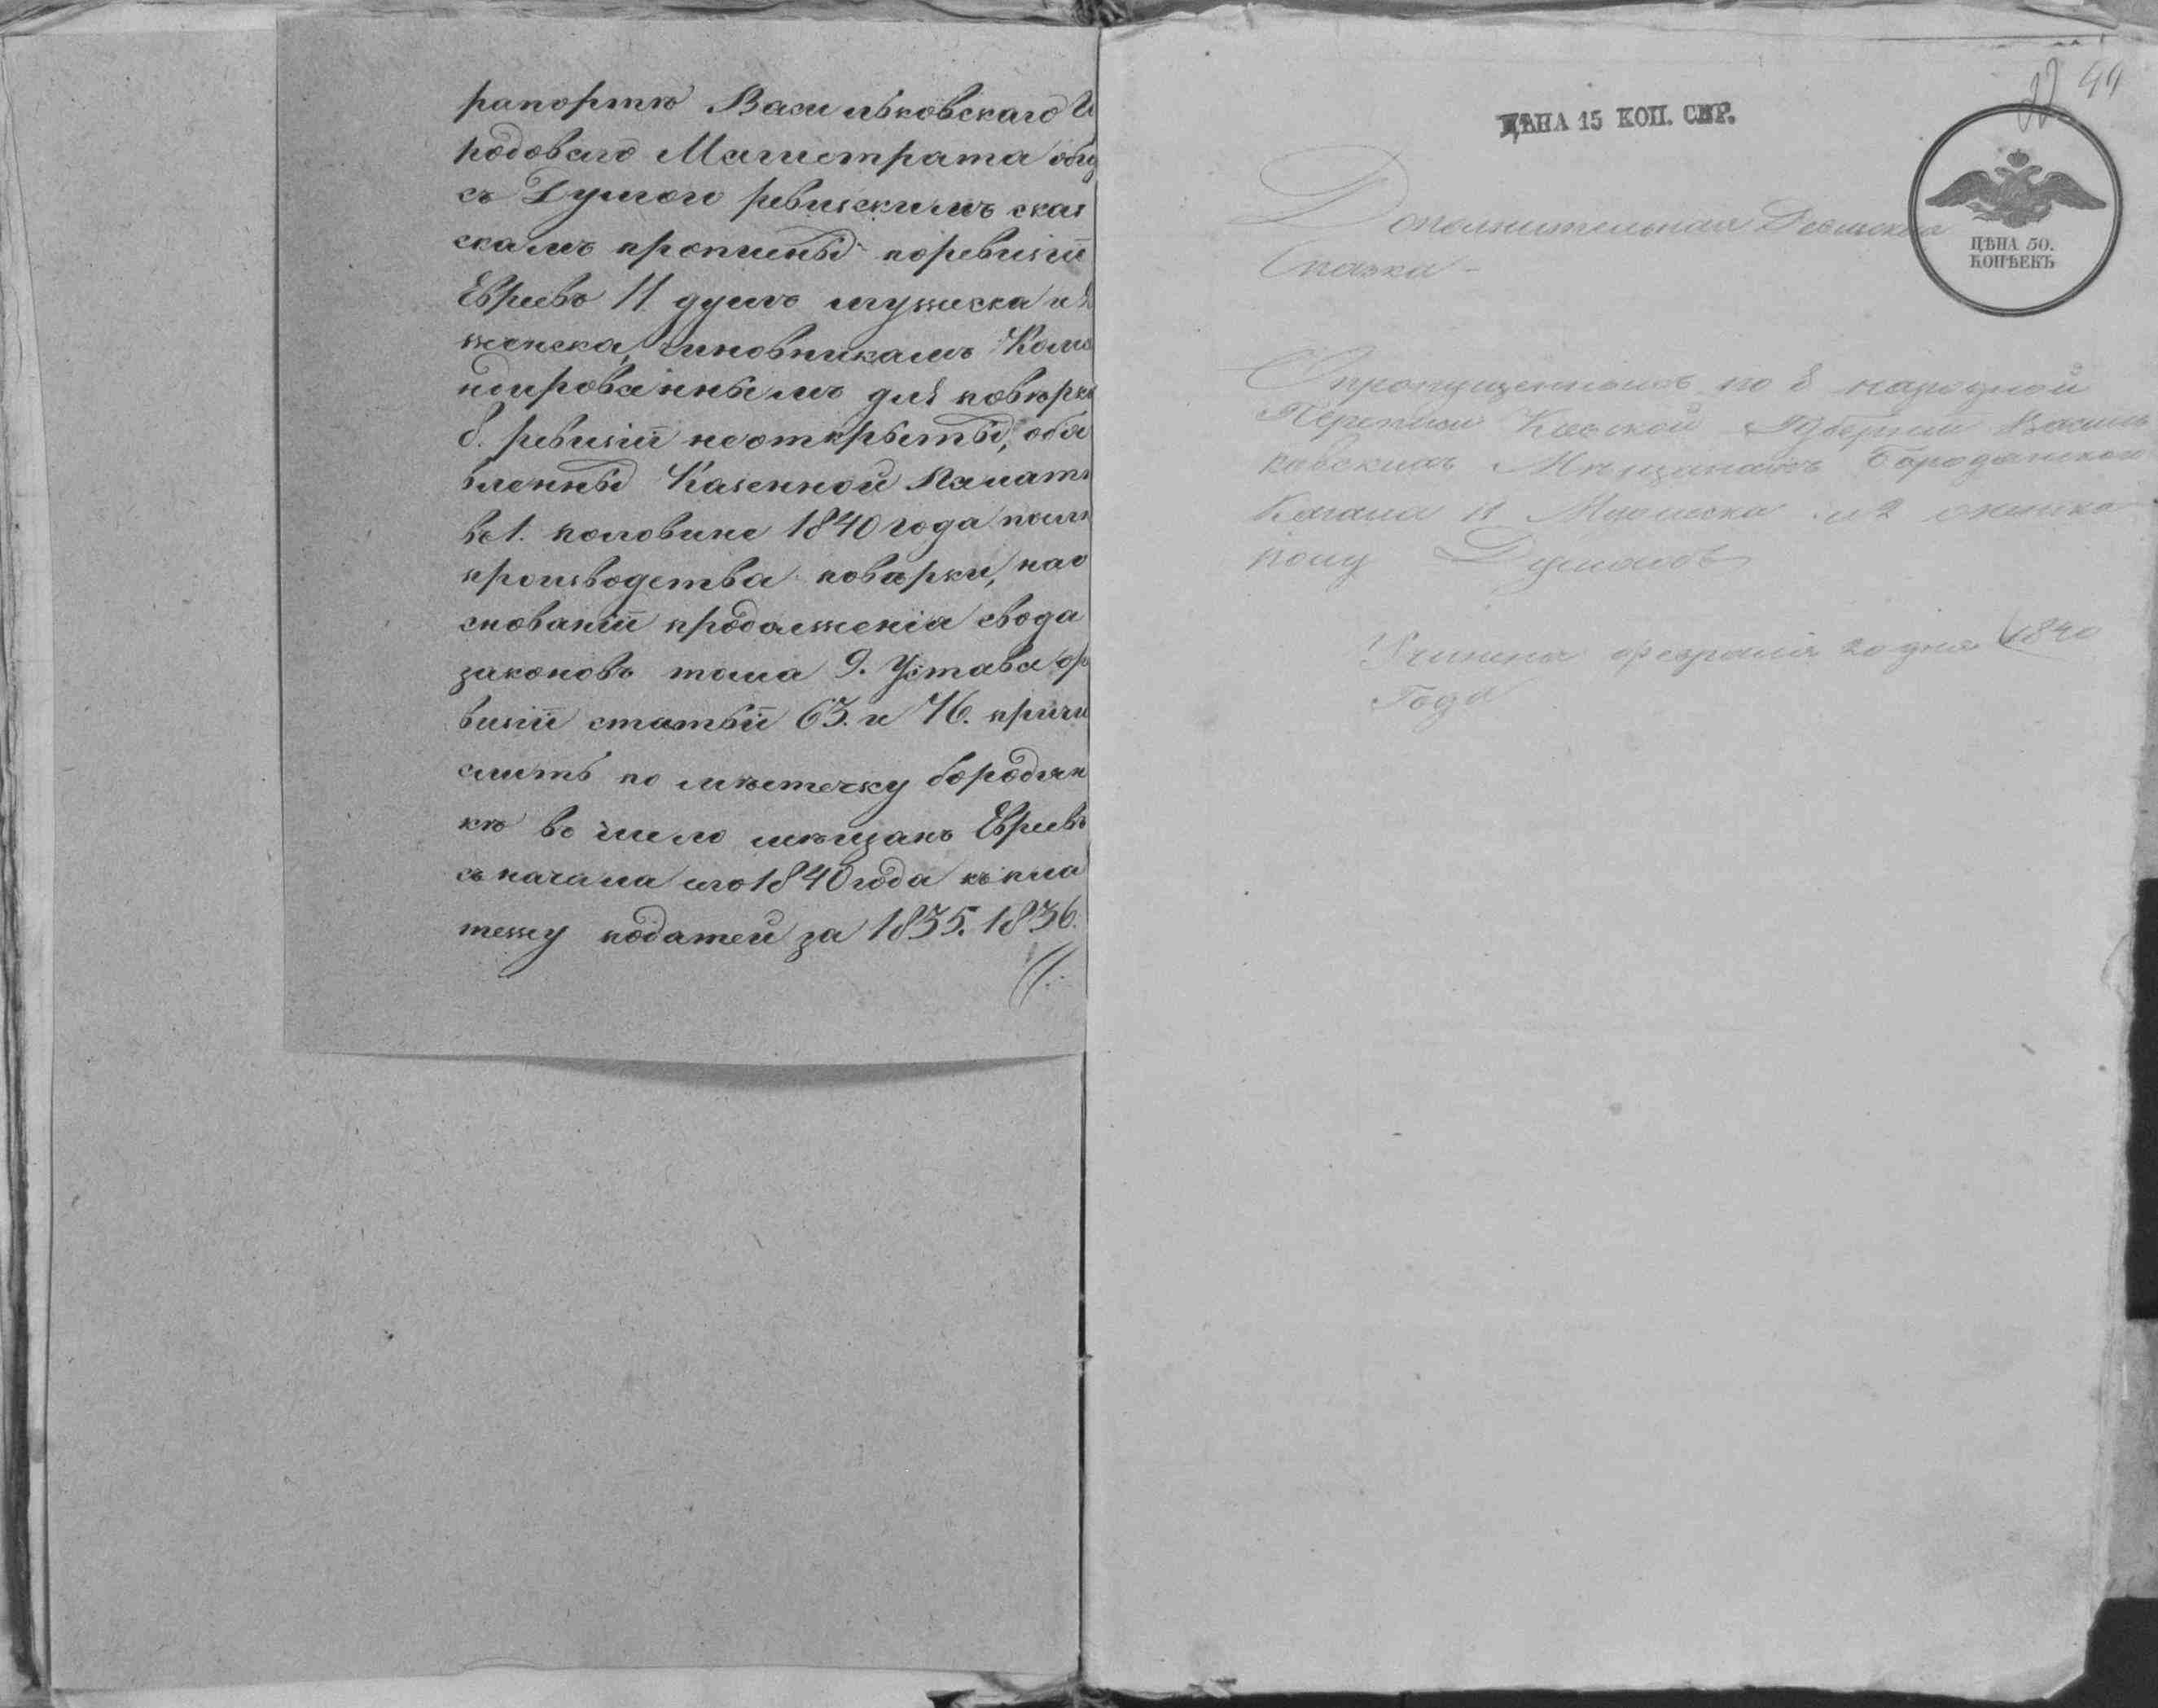 рапортѣ Васильковскаго Го
родоваго Магистрата общ
съ Думою ревизскимъ сказ
скамъ пропищены по ревизіи
Евреевъ 11 душъ мужеска и 2
женска, чиновникамъ Кома
ндированнымъ для повѣрки
8. ревизіи не открыты, объя
вленны Казенной Палатѣ
въ 1. половине 1840 года посли
производства повѣрки, на о
снованіи продолженія свода
законовъ тома 9. Устава о ре
визіи статьи 63. и 76. причи
слить по мѣстечку бородян
кѣ въ число мѣщанъ Евреевъ
съ начала 1840 года къ пла
тежу податей за 1835. 1836.
22 44
ЦѢНА 15 КОП. СЕР.
ЦѢНА 50.
КОПѢЕКЪ
Дополнительная Ревизская
Сказка
О пропущенныхъ по 8 народной
Переписи Кіевской Губерніи Василь
ковскимъ Мѣщанамъ Бородянского
Кагала 11 Мужеска и 2 женска
полу Душахъ
Учинена февраля 20 дня 1840
Года